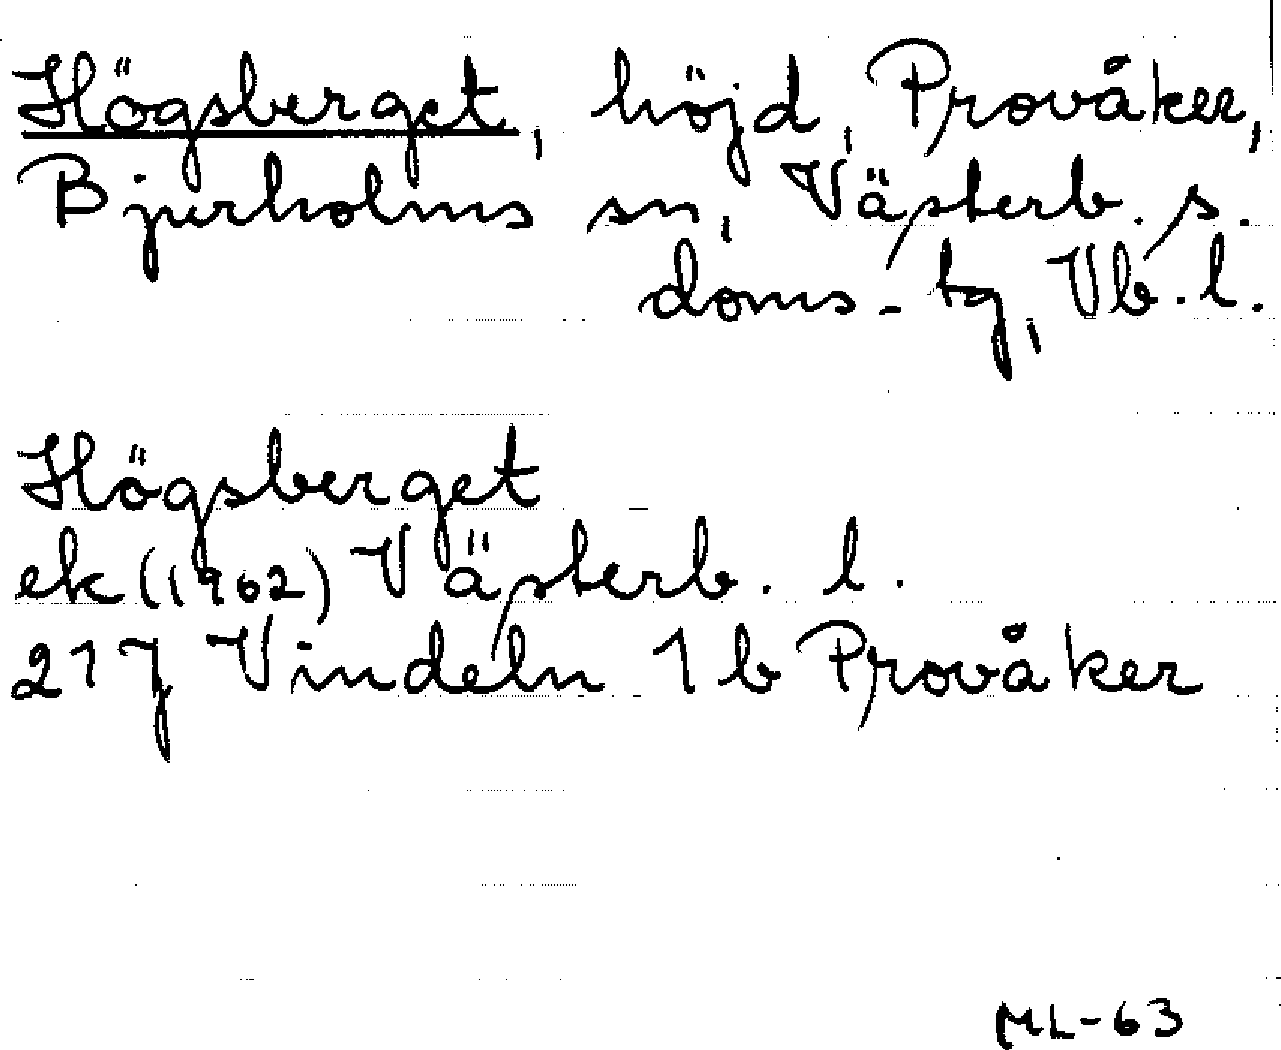 Högsberget, höjd, Provåker,
Bjurholms sn, Västerb. s.
doms-tg, Vb. l.
Högsberget
ek (1962) Västerb. l.
21J Vindeln 1b Provåker
ML-63